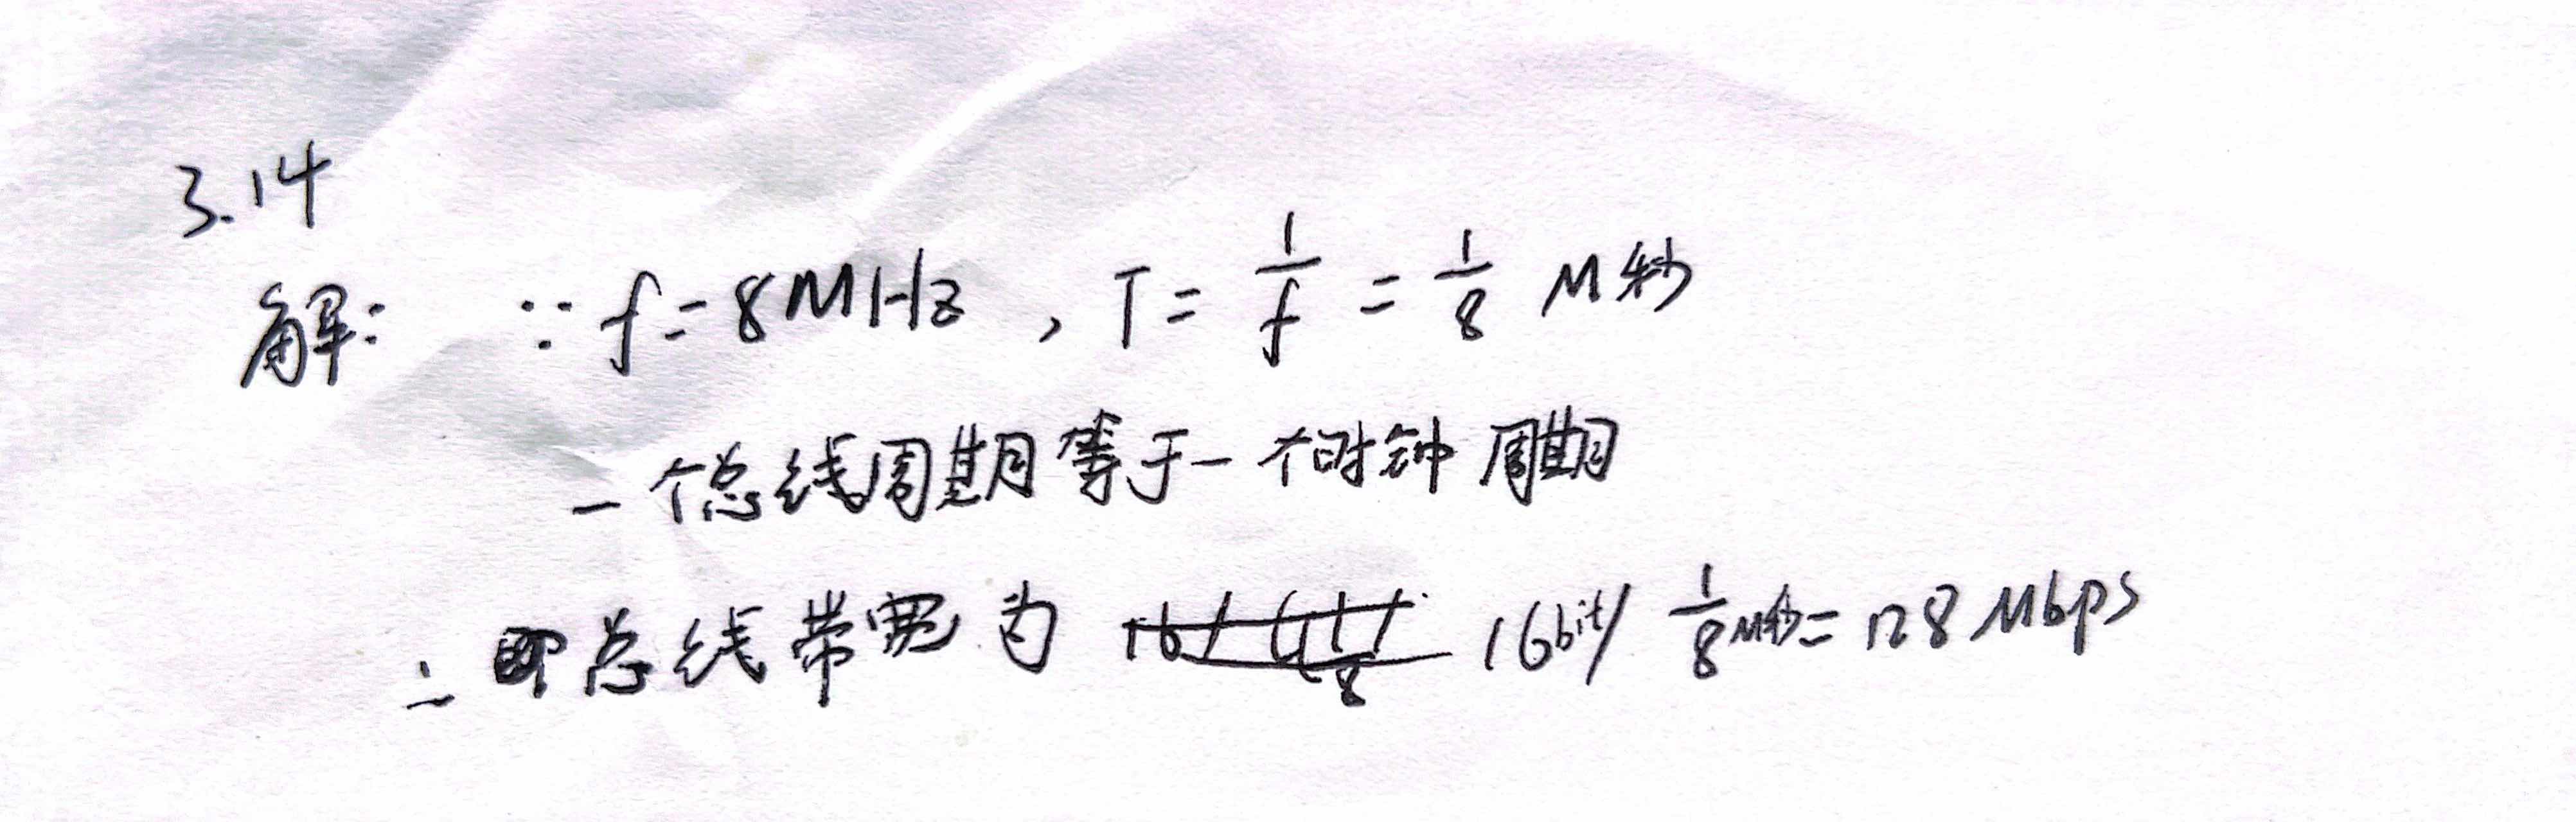 3.14
解: ∵ f=8MHz, T=1/f=1/8 M秒
一个总线周期等于一个时钟周期
∴ 总线带宽为 16bit/ 1/8 M秒=128Mbps